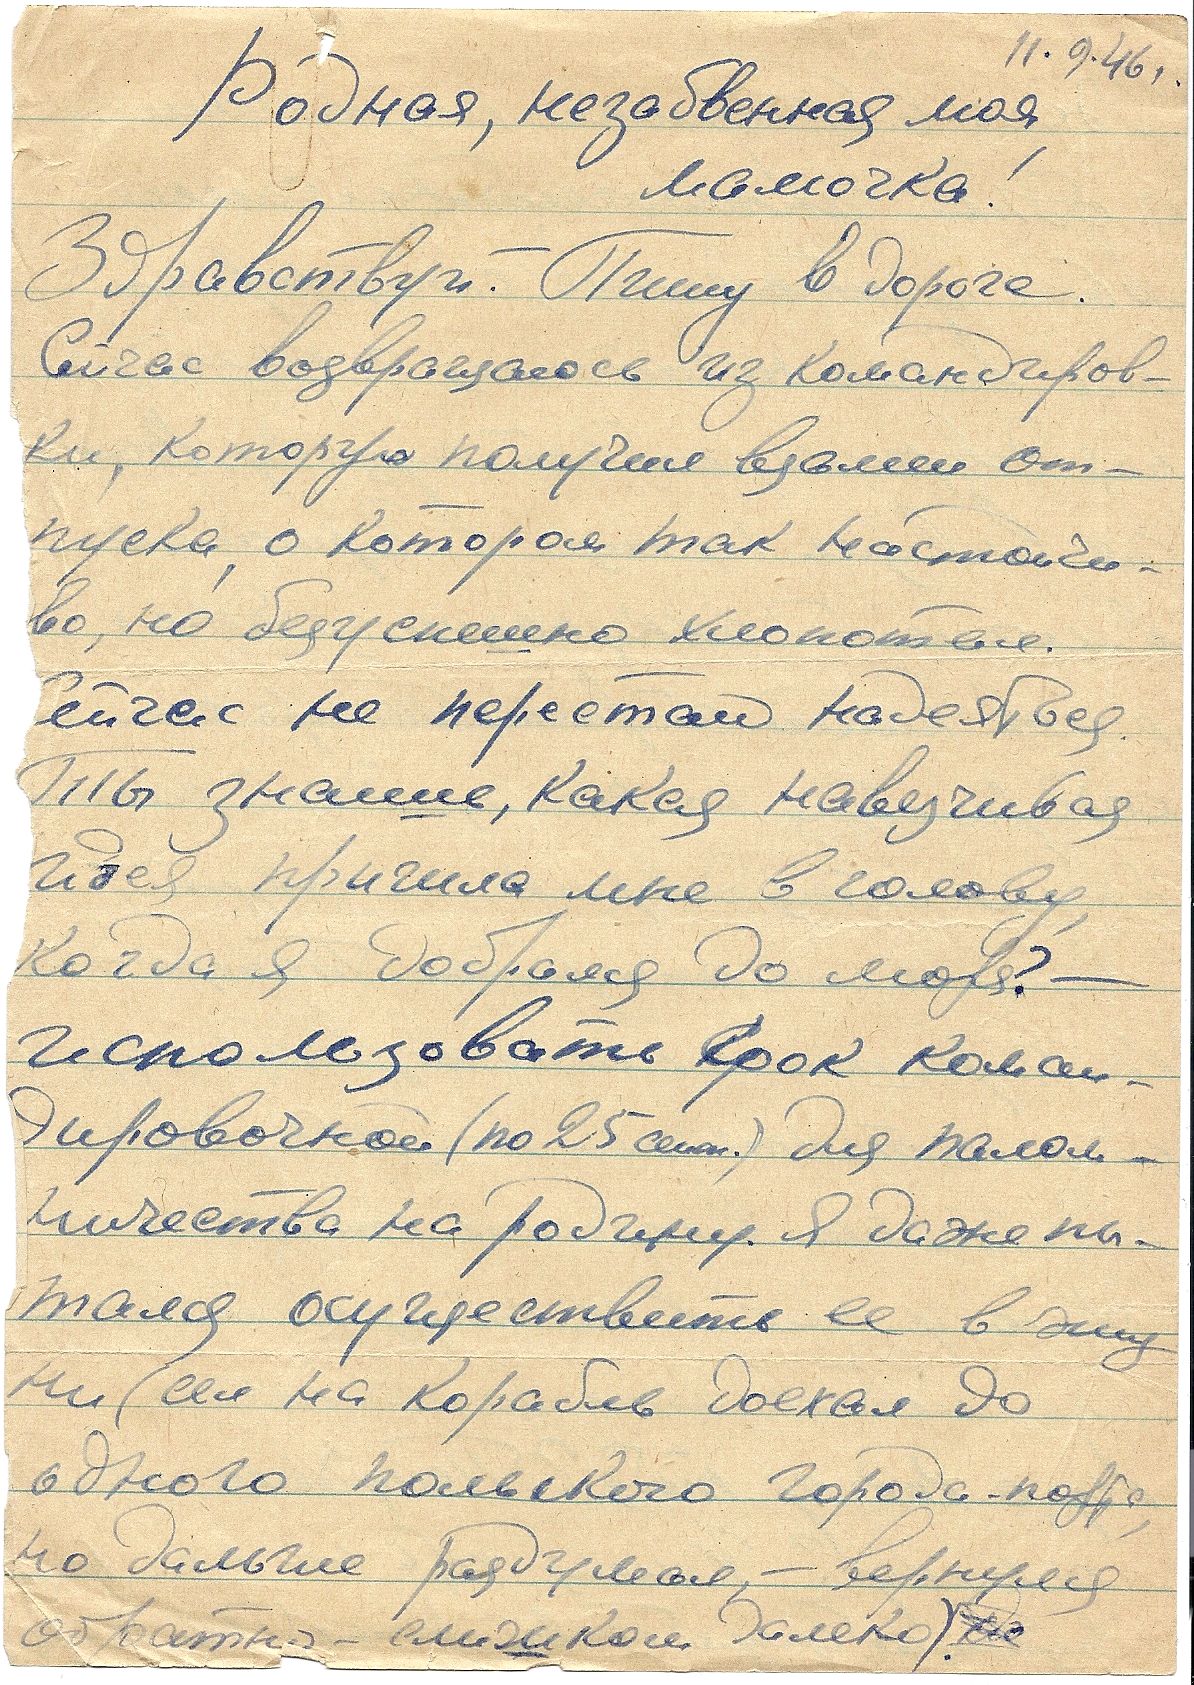 11.9.46 г.
Родная, незабвенная моя
мамочка!
Здравствуй. Пишу в дороге.
Сейчас возвращаюсь из командиров-
ки, которую получил взамен от-
пуска, о котором так настойчи-
во, но безуспешно хлопотал.
Сейчас не перестаю надеяться.
Ты знаешь, какая навязчивая
идея пришла мне в голову,
когда я добрался до моря? —
использовать срок коман-
дировочной (по 25 сент.) для палом-
ничества на родину. Я даже пы-
тался осуществить ее в
ни (сел на корабль доехал до
одного польского города-порта,
но дальше раздумал, — вернулся
обратно — слишком далеко).